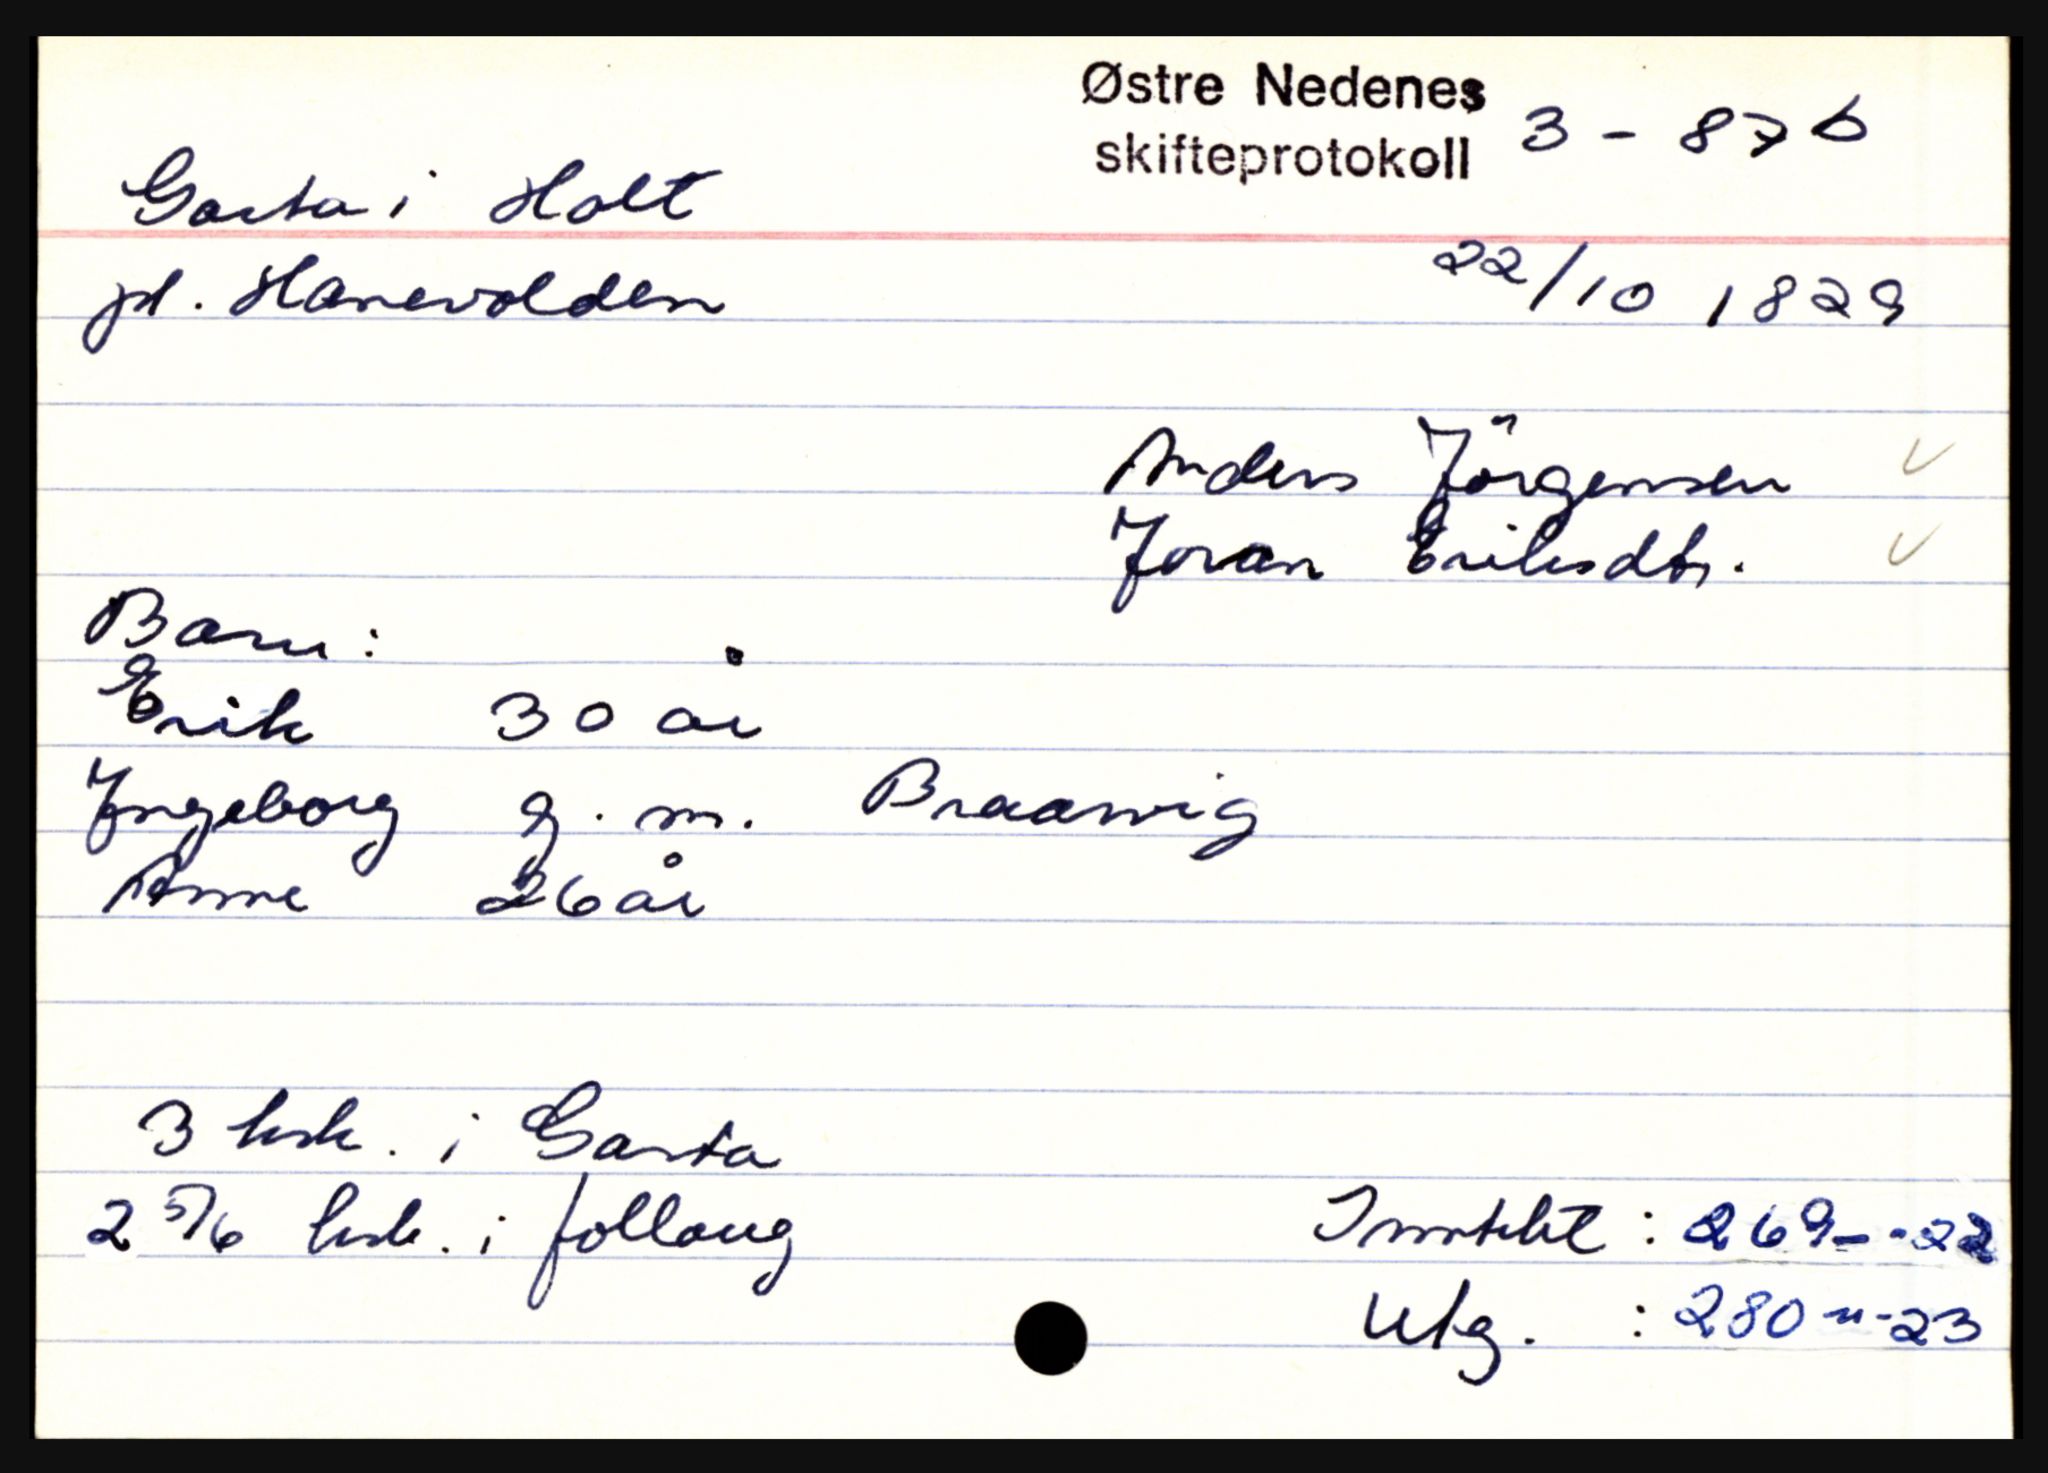 Østre Nedenes
skifteprotokoll 3 - 87 b
Garta i Holt
pl. Hanevolden 22/10 1829
Anders Jörgensen
Joran Eriksdtr.
Barn:
Erik 30 år
Ingeborg g. m. Braavvig
Anne 26 år
3 hsk. i Garta
2 5/6 hsk. i follaug
Inntekt : 269 - - 22
Utg. : 280 - " - 23